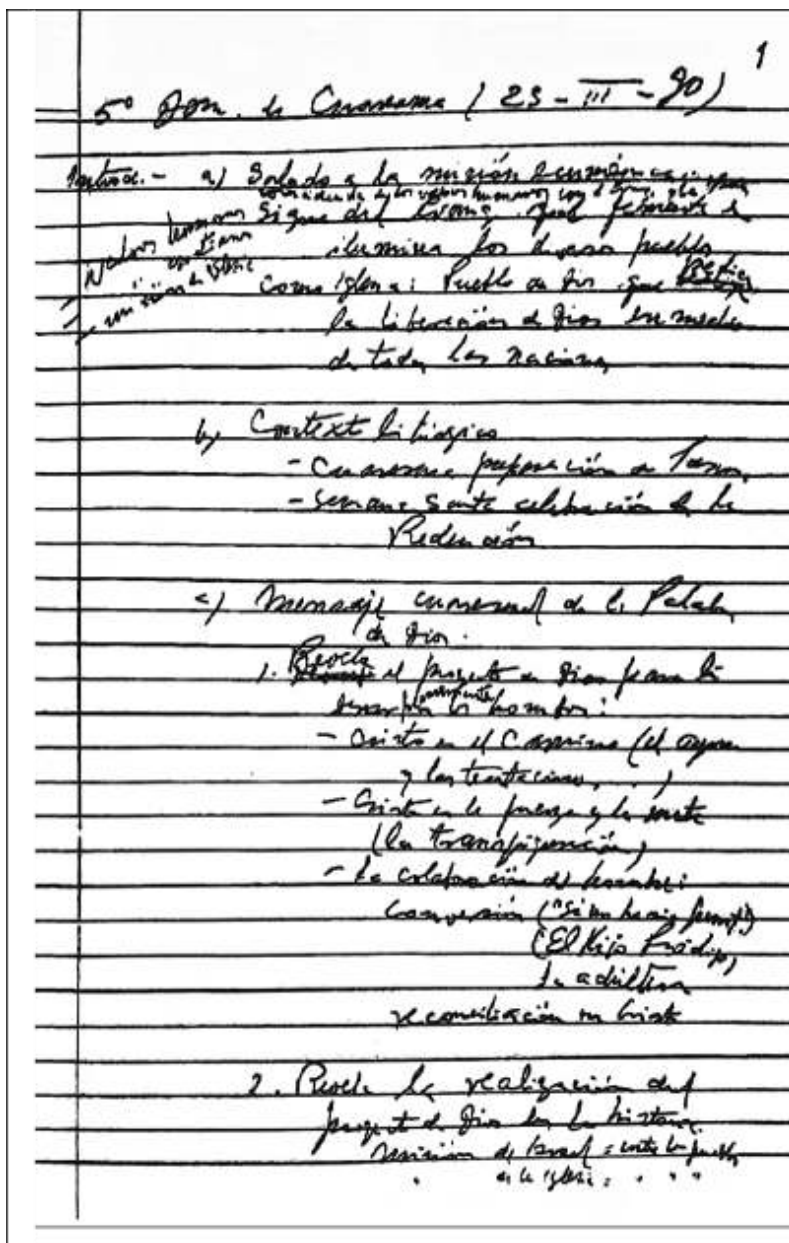 1
5º Dom. de Cuaresma (23-III-80)
Introd. - a) Saludo a la misión Ecuménica:
coincidencia de los valores humanos con el
Signo del
Valores humanos
" cristianos
misión de Iglesia
ilumina los diversos pueblos
como Iglesia: Pueblo de Dios que
la liberación de Dios en medio
de todas las naciones
b) Context litúrgico
- Cuaresma preparación de Pascua
- Semana Santa celebración de la
Redención
c) Mensaje cuaresmal de la Palabra
de Dios.
1. Revela el proyecto de Dios para li
los hombres:
- Cristo es el Camino (el ayuno
y las tentaciones, ...)
- Cristo es la fuerza y la meta
(la transfiguración)
- La colaboración del hombre:
Conversión ("Si no hacéis penit")
(El Hijo Pródigo,
La adúltera
reconciliación en Cristo
2. Revela la realización del
proyect de Dios en la historia
misión de Israel = entre los pueblos
" de la iglesia = " " "